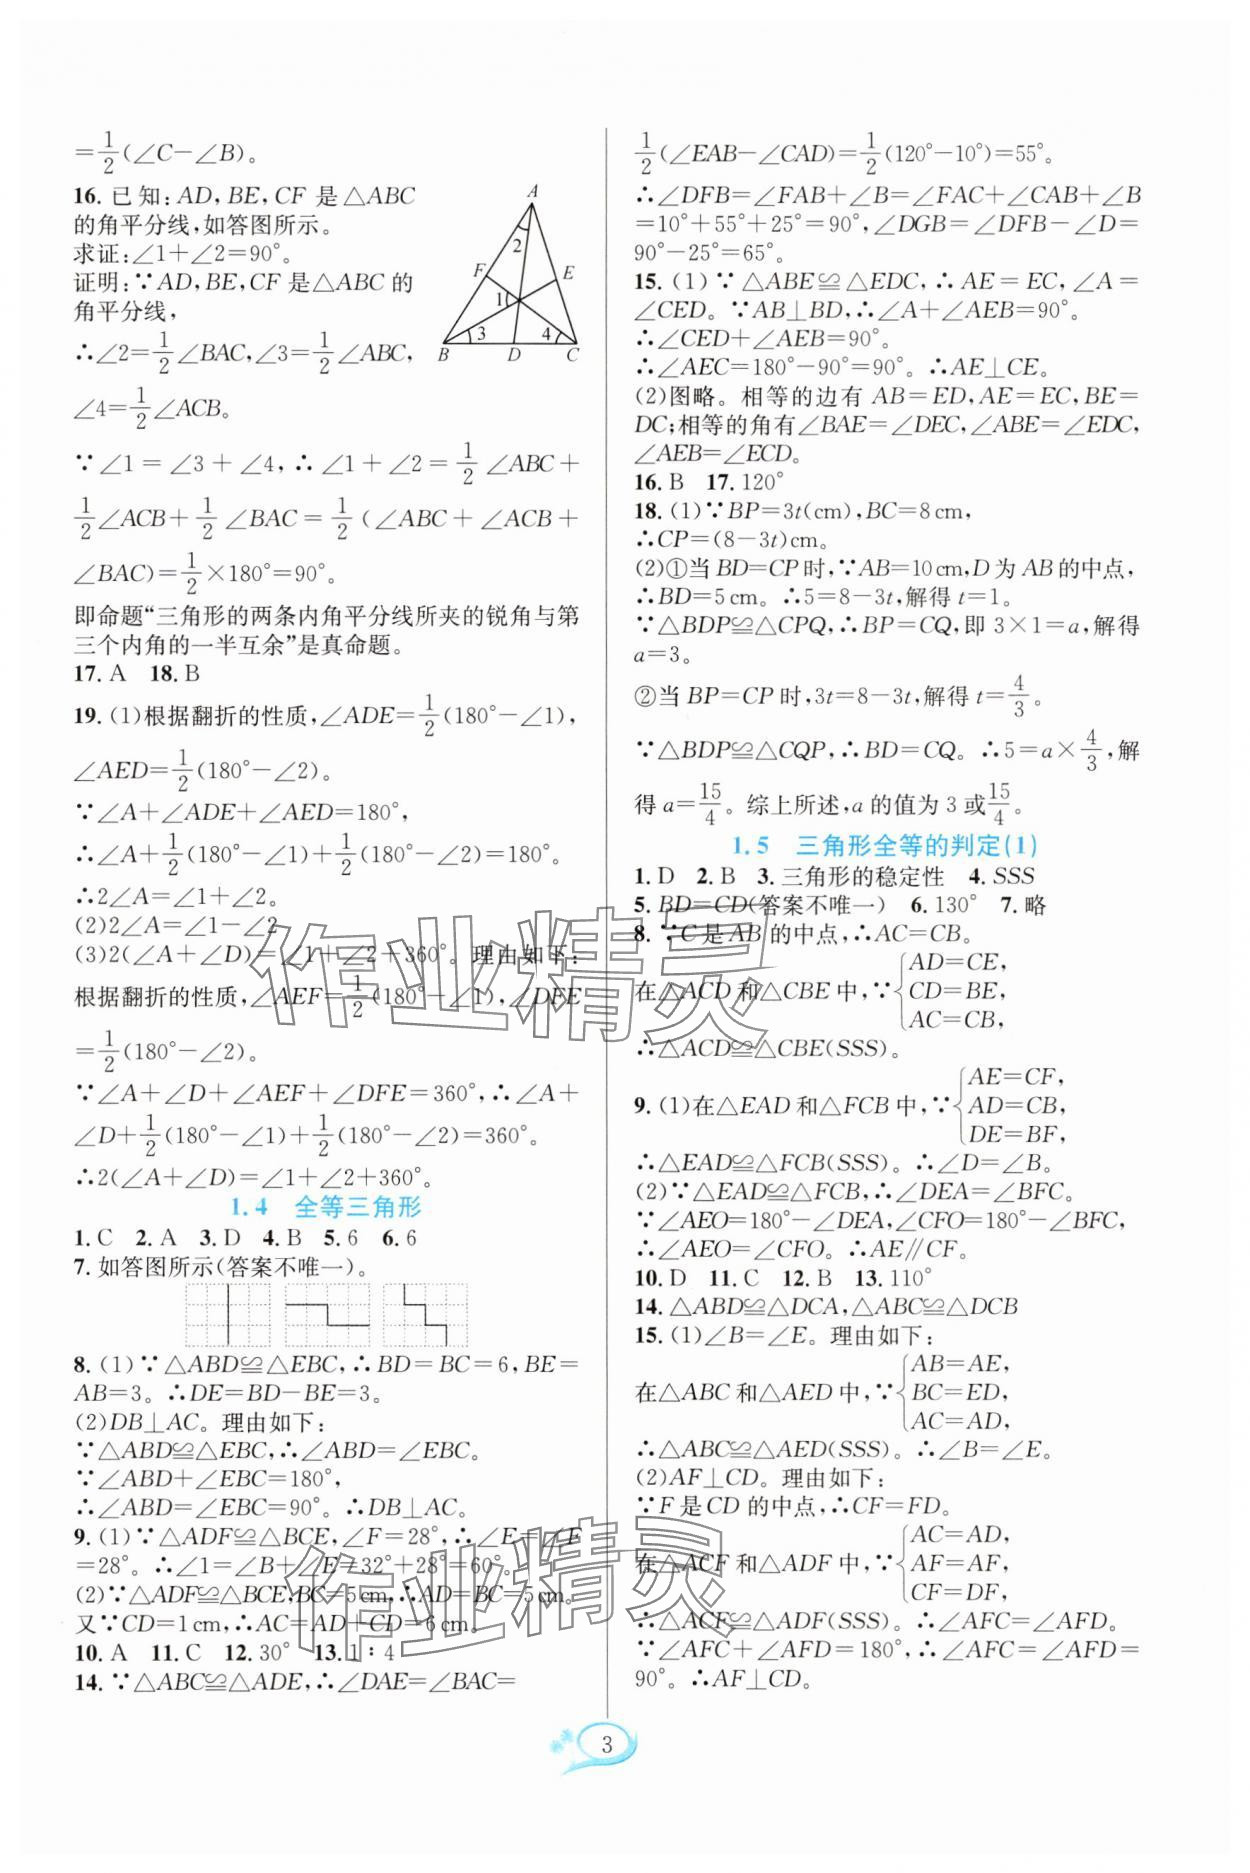 =1/2(∠C-∠B)。
16.已知:AD,BE,CF是△ABC
的角平分线,如答图所示。
求证:∠1+∠2=90°。
证明:∵AD,BE,CF是△ABC的
角平分线,
∴∠2=1/2∠BAC,∠3=1/2∠ABC,
∠4=1/2∠ACB。
A
2
F
E
1
3
4
B
D
C
∵∠1=∠3+∠4,∴∠1+∠2=1/2∠ABC+
1/2∠ACB+1/2∠BAC=1/2(∠ABC+∠ACB+
∠BAC)=1/2×180°=90°。
即命题“三角形的两条内角平分线所夹的锐角与第
三个内角的一半互余”是真命题。
17.A 18.B
19.(1)根据翻折的性质,∠ADE=1/2(180°-∠1),
∠AED=1/2(180°-∠2)。
∵∠A+∠ADE+∠AED=180°,
∴∠A+1/2(180°-∠1)+1/2(180°-∠2)=180°。
∴2∠A=∠1+∠2。
(2)2∠A=∠1-∠2
(3)2(∠A+∠D)=∠1+∠2+360°。理由如下:
根据翻折的性质,∠AEF=1/2(180°-∠1),∠DFE
=1/2(180°-∠2)。
∵∠A+∠D+∠AEF+∠DFE=360°,∴∠A+
∠D+1/2(180°-∠1)+1/2(180°-∠2)=360°。
∴2(∠A+∠D)=∠1+∠2+360°。
1.4 全等三角形
1.C 2.A 3.D 4.B 5.6 6.6
7.如答图所示(答案不唯一)。
8.(1)∵△ABD≌△EBC,∴BD=BC=6,BE=
AB=3。∴DE=BD-BE=3。
(2)DB⊥AC。理由如下:
∵△ABD≌△EBC,∴∠ABD=∠EBC。
∵∠ABD+∠EBC=180°,
∴∠ABD=∠EBC=90°。∴DB⊥AC。
9.(1)∵△ADF≌△BCE,∠F=28°,∴∠E=∠F
=28°。∴∠1=∠B+∠E=32°+28°=60°。
(2)∵△ADF≌△BCE,BC=5cm,∴AD=BC=5cm。
又∵CD=1cm,∴AC=AD+CD=6cm。
10.A 11.C 12.30° 13.1∶4
14.∵△ABC≌△ADE,∴∠DAE=∠BAC=
1/2(∠EAB-∠CAD)=1/2(120°-10°)=55°。
∴∠DFB=∠FAB+∠B=∠FAC+∠CAB+∠B
=10°+55°+25°=90°,∠DGB=∠DFB-∠D=
90°-25°=65°。
15.(1)∵△ABE≌△EDC,∴AE=EC,∠A=
∠CED。∵AB⊥BD,∴∠A+∠AEB=90°。
∴∠CED+∠AEB=90°。
∴∠AEC=180°-90°=90°。∴AE⊥CE。
(2)图略。相等的边有AB=ED,AE=EC,BE=
DC;相等的角有∠BAE=∠DEC,∠ABE=∠EDC,
∠AEB=∠ECD。
16.B 17.120°
18.(1)∵BP=3t(cm),BC=8cm,
∴CP=(8-3t)cm。
(2)①当BD=CP时,∵AB=10cm,D为AB的中点,
∴BD=5cm。∴5=8-3t,解得t=1。
∵△BDP≌△CPQ,∴BP=CQ,即3×1=a,解得
a=3。
②当BP=CP时,3t=8-3t,解得t=4/3。
∵△BDP≌△CQP,∴BD=CQ。∴5=a×4/3,解
得a=15/4。综上所述,a的值为3或15/4。
1.5 三角形全等的判定(1)
1.D 2.B 3.三角形的稳定性 4.SSS
5.BD=CD(答案不唯一) 6.130° 7.略
8.∵C是AB的中点,∴AC=CB。
在△ACD和△CBE中,∵{AD=CE,
CD=BE,
AC=CB,
∴△ACD≌△CBE(SSS)。
9.(1)在△EAD和△FCB中,∵{AE=CF,
AD=CB,
DE=BF,
∴△EAD≌△FCB(SSS)。∴∠D=∠B。
(2)∵△EAD≌△FCB,∴∠DEA=∠BFC。
∵∠AEO=180°-∠DEA,∠CFO=180°-∠BFC,
∴∠AEO=∠CFO。∴AE∥CF。
10.D 11.C 12.B 13.110°
14.△ABD≌△DCA,△ABC≌△DCB
15.(1)∠B=∠E。理由如下:
在△ABC和△AED中,∵{AB=AE,
BC=ED,
AC=AD,
∴△ABC≌△AED(SSS)。∴∠B=∠E。
(2)AF⊥CD。理由如下:
∵F是CD的中点,∴CF=FD。
在△ACF和△ADF中,∵{AC=AD,
AF=AF,
CF=DF,
∴△ACF≌△ADF(SSS)。∴∠AFC=∠AFD。
∵∠AFC+∠AFD=180°,∴∠AFC=∠AFD=
90°。∴AF⊥CD。
作业精灵
作业精灵
3